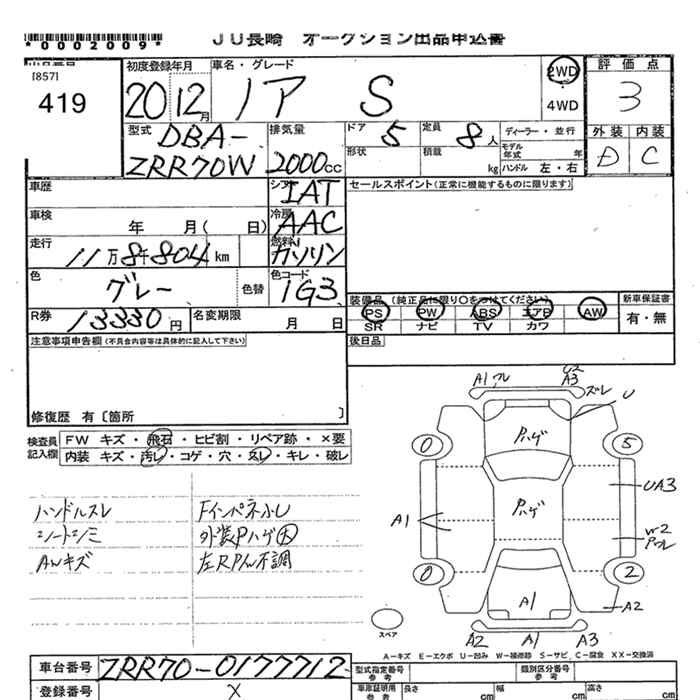 *0002009*
JU長崎 オークション出品申込書
[857]
419
初度登録年月
20 12月
車名・グレード
ノア S
2WD
4WD
評価点
3
外装 内装
D C
型式
DBA-
ZRR70W
排気量
2000cc
ドア 5
定員 8人
形状
積載 kg
ディーラー・並行
モデル年式 年
ハンドル 左・右
車歴
シフト IAT
セールスポイント(正常に機能するものに限ります)
車検 年 月( 日)
冷房 AAC
走行 11万8千804km
燃料 ガソリン
色 グレー 色替
色コード 1G3
R券 13330円
名変期限 月 日
装備品(純正品に限り○をつけてください)
PS PW ABS エアB AW
SR ナビ TV カワ
新車保証書
有・無
注意事項申告欄(不具合内容等は具体的に記入して下さい)
後日品
修復歴 有〔箇所 〕
検査員記入欄
FW キズ・飛石・ヒビ割・リペア跡・×要
内装 キズ・汚レ・コゲ・穴・スレ・キレ・破レ
ハンドルスレ
シートシミ
AWキズ
Fインパネふし
外装Pハゲ大
左RPW不調
A1 フレ
U2
A3
ズレ
U
Pハゲ
0
5
A1
Pハゲ
UA3
W2
Pフレ
0
2
A1
A2
スペア
A2 A1 A3
A-キズ E-エクボ U-凹み W-補修跡 S-サビ C-腐食 XX-交換済
車台番号 ZRR70-0177712
登録番号 X
型式指定番号
参考
類別区分番号
参考
車庫証明用
参考
長さ cm
幅 cm
高さ cm